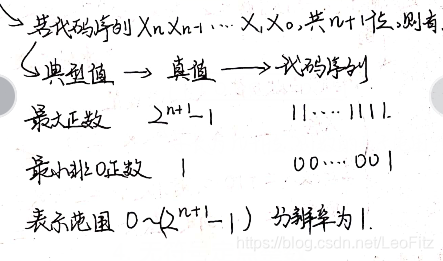 若代码序列 Xn Xn-1 ···· X1 X0,共n+1位,则有
典型值 → 真值 → 代码序列
最大正数 2^{n+1}-1 11····1111.
最小非0正数 1 00····001
表示范围 0~(2^{n+1}-1) 分辨率为1.
https://blog.csdn.net/LeoFitz